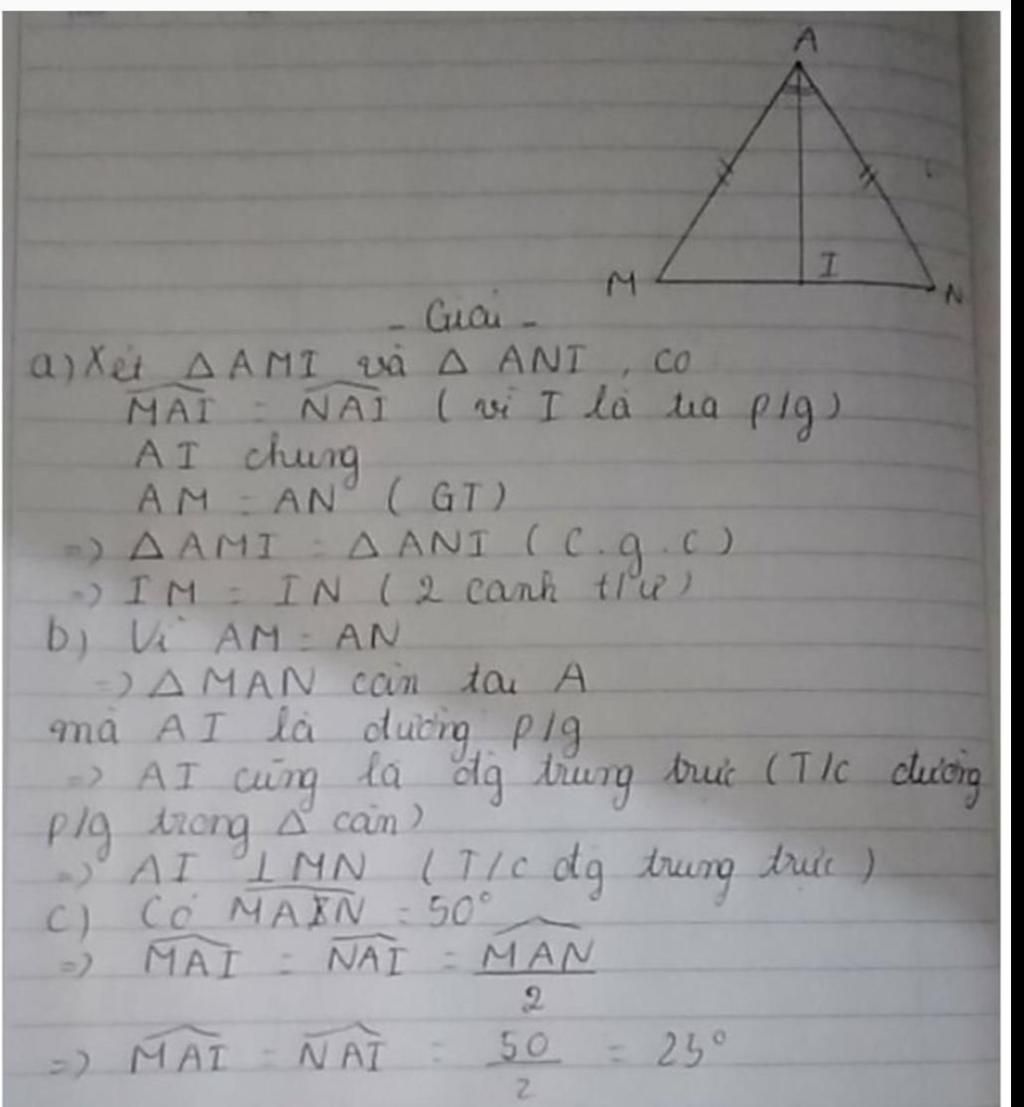 A
M
I
N
- Giải -
a) Xét Δ AMI và Δ ANI, có
\widehat{MAI} = \widehat{NAI} ( vì I là tia p/g)
AI chung
AM = AN ( GT )
=) Δ AMI = Δ ANI ( c.g.c )
=) IM = IN ( 2 cạnh t/ư )
b) Vì AM = AN
=) Δ MAN cân tại A
mà AI là đường p/g
=) AI cũng là đg trung trực (T/c đường
p/g trong Δ cân)
=) AI ⊥ MN ( T/c đg trung trực )
c) Có \widehat{MAN} = 50°
=) \widehat{MAI} = \widehat{NAI} = \frac{\widehat{MAN}}{2}
=) \widehat{MAI} = \widehat{NAI} = \frac{50}{2} = 25°